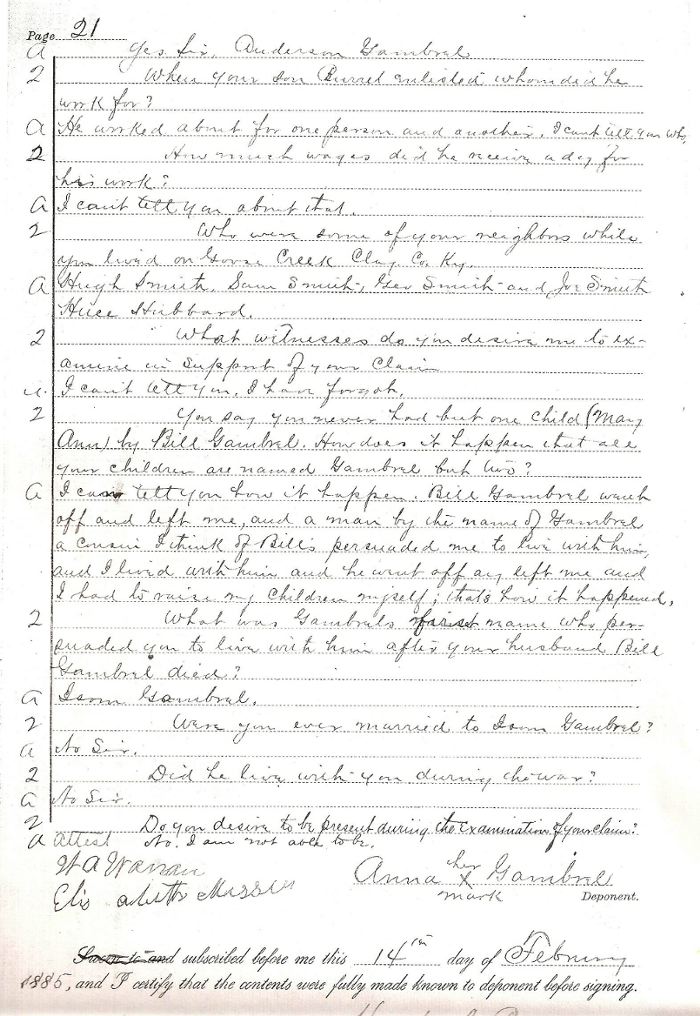 Page 21
a Yes sir, Anderson Gambrel
2 When your son Burrel enlisted whom did he
work for?
a He worked about for one person and another. I cant tell you who
2 How much wages did he receive a day for
his work?
a I can't tell you about that.
2 Who were some of your neighbors while
you lived on Goose Creek Clay Co. Ky.
a Hugh Smith, Sam Smith, Geo Smith and Joe Smith
Huce Hubbard.
2 What witnesses do you desire me to ex-
amine in support of your Claim
a. I can't tell you. I have forgot.
2 You say you never had but one child (Mary
Ann) by Bill Gambrel. How does it happen that all
your children are named Gambrel but two?
a I can tell you how it happen. Bill Gambrel went
off and left me, and a man by the name of Gambrel
a cousin I think of Bill's persuaded me to live with him,
and I lived with him and he went off an left me and
I had to raise my children myself; thats how it happened.
2 What was Gambrels first name who per-
suaded you to live with him after your husband Bill
Gambrel died?
a Isom Gambrel.
2 Were you ever married to Isom Gambrel?
a No Sir.
2 Did he live with you during the war?
a No Sir.
2 Do you desire to be present during the examination of your claim?
a attest No. I am not able to be.
W A Warran
Elizabeth Messer
Anna her X mark Gambrel
Deponent.
Sworn to and subscribed before me this 14th day of February
1885, and I certify that the contents were fully made known to deponent before signing.